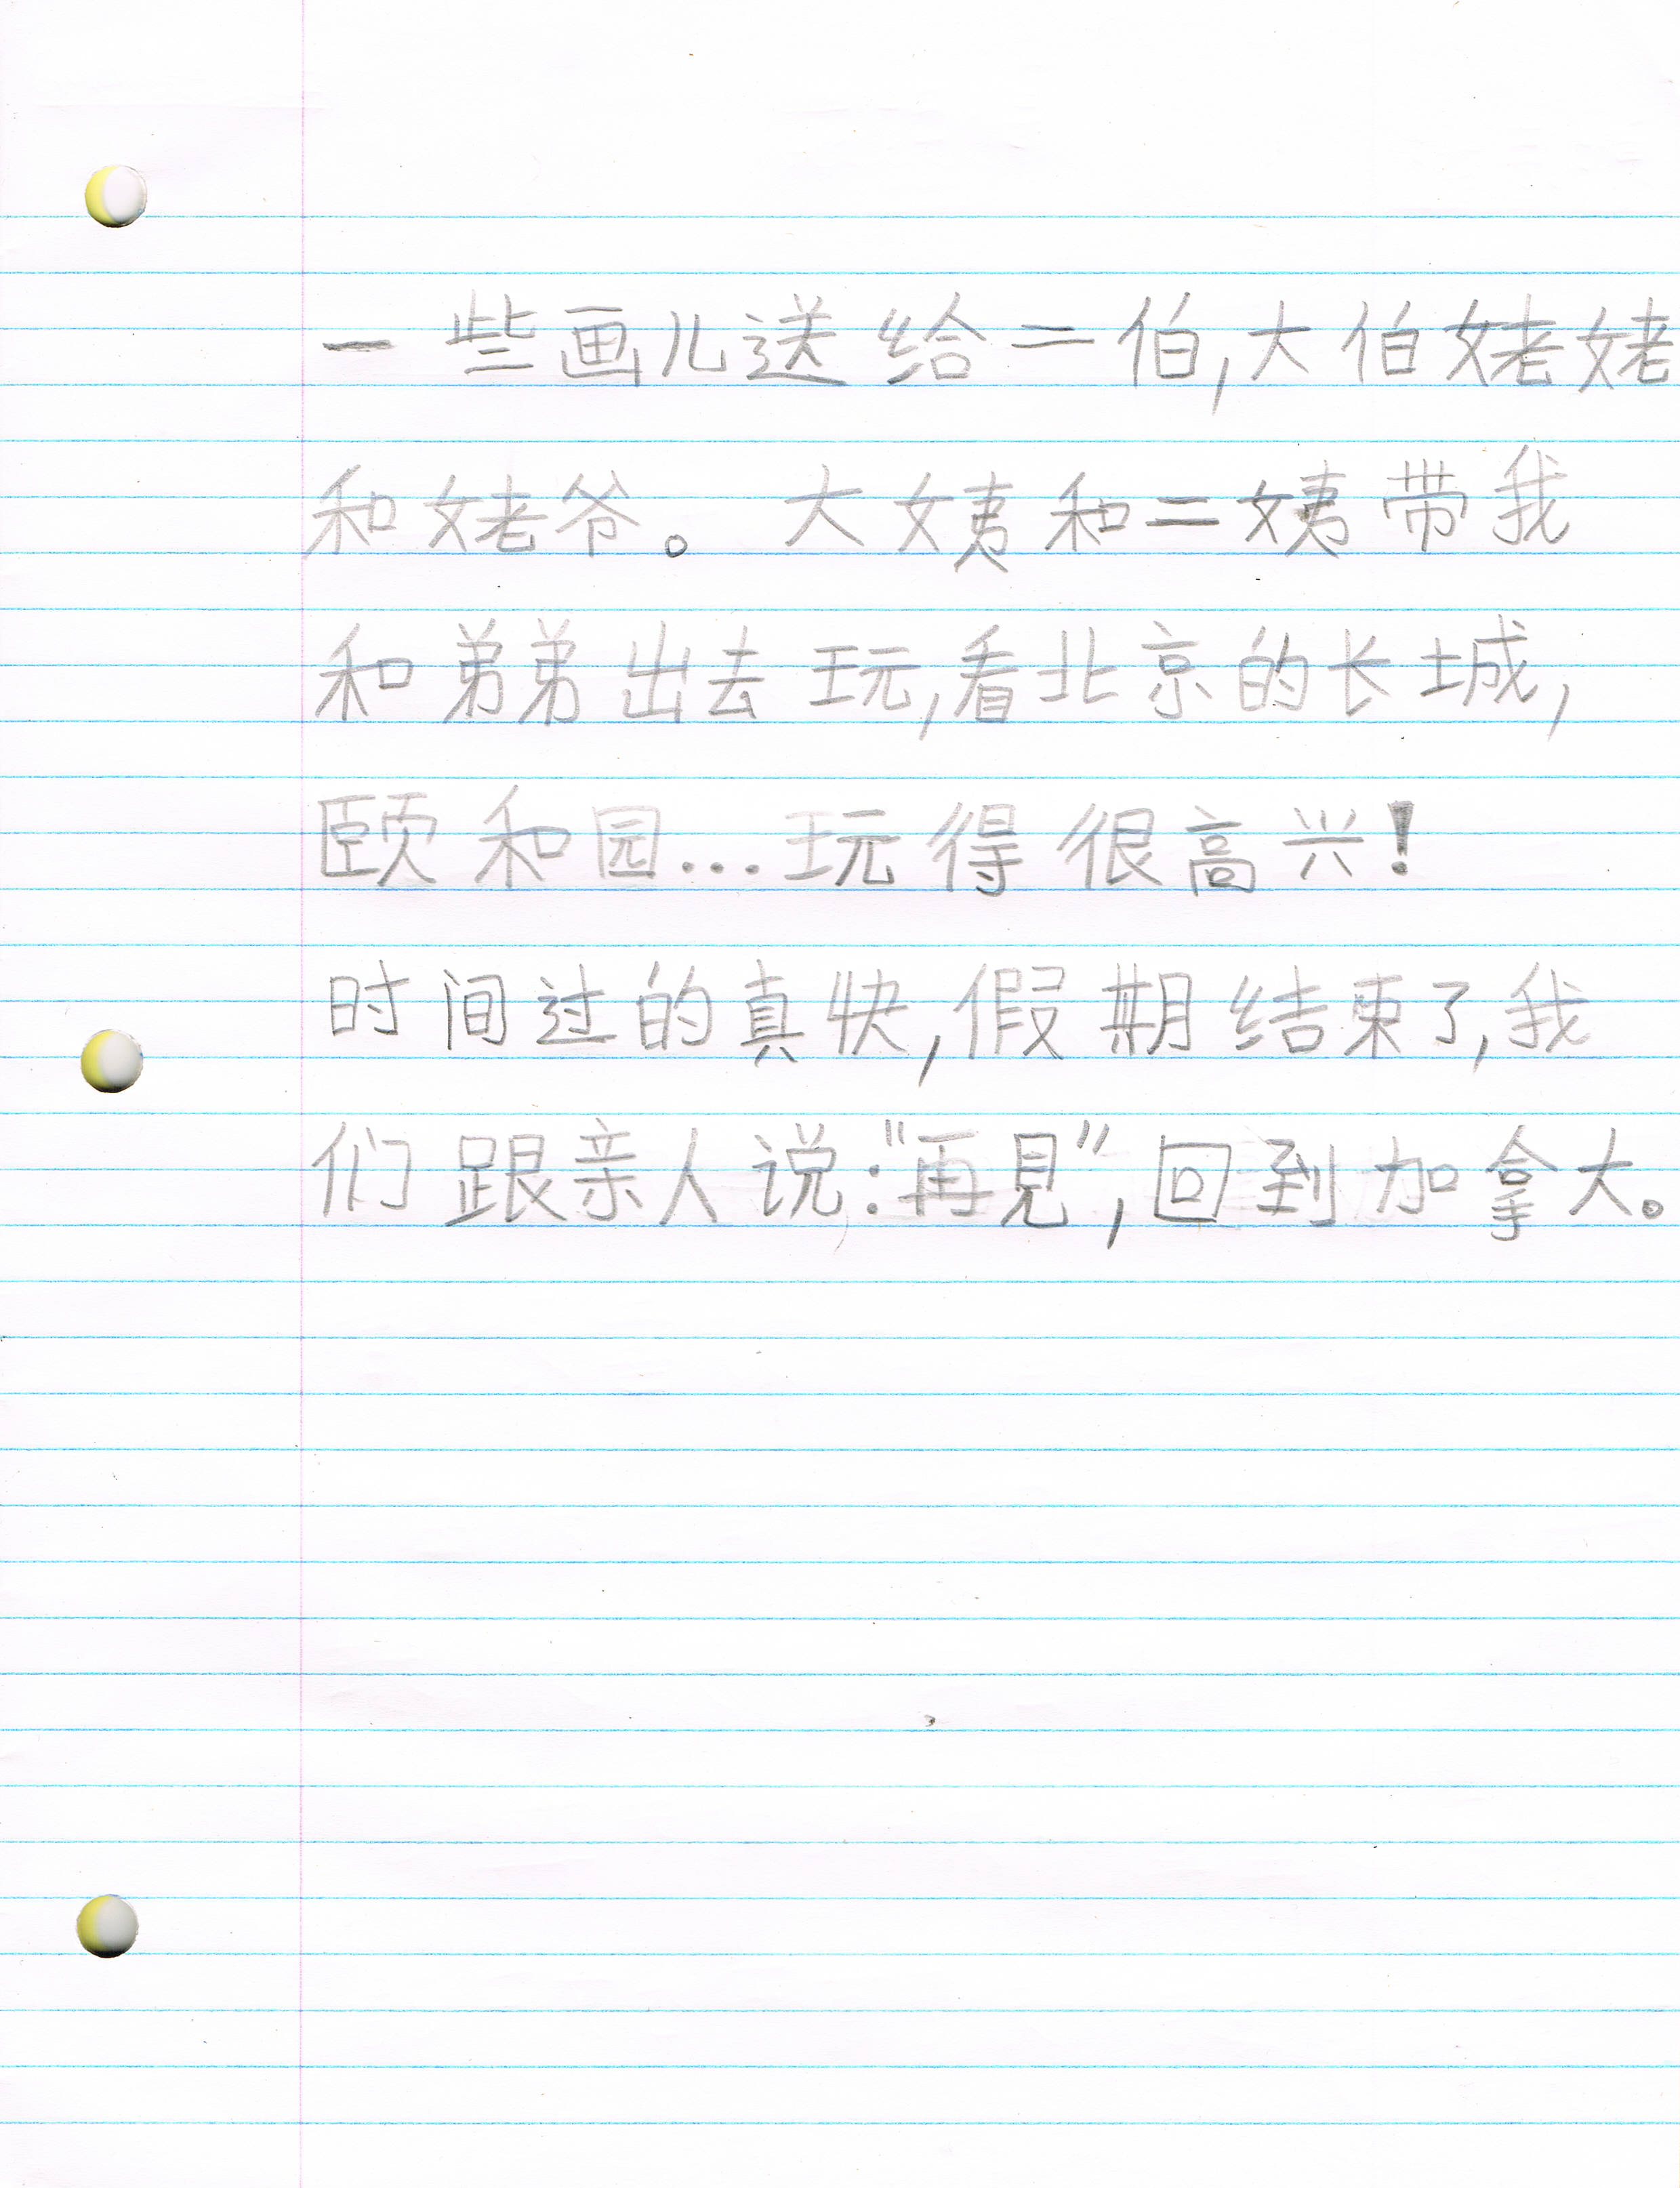 一些画儿送给二伯,大伯姥姥
和姥爷。大姨和二姨带我
和弟弟出去玩,看北京的长城,
颐和园...玩得很高兴!
时间过的真快,假期结束了,我
们跟亲人说:"再見",回到加拿大。